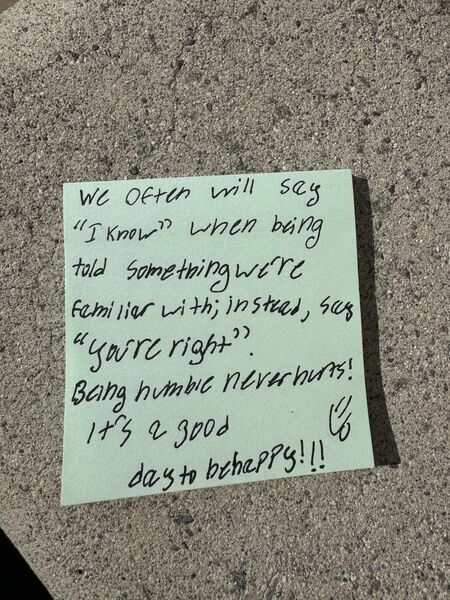 We Often will say
"I know" when being
told something we're
familiar with; instead, say
"you're right".
Being humble never hurts!
It's a good
day to be happy!!!